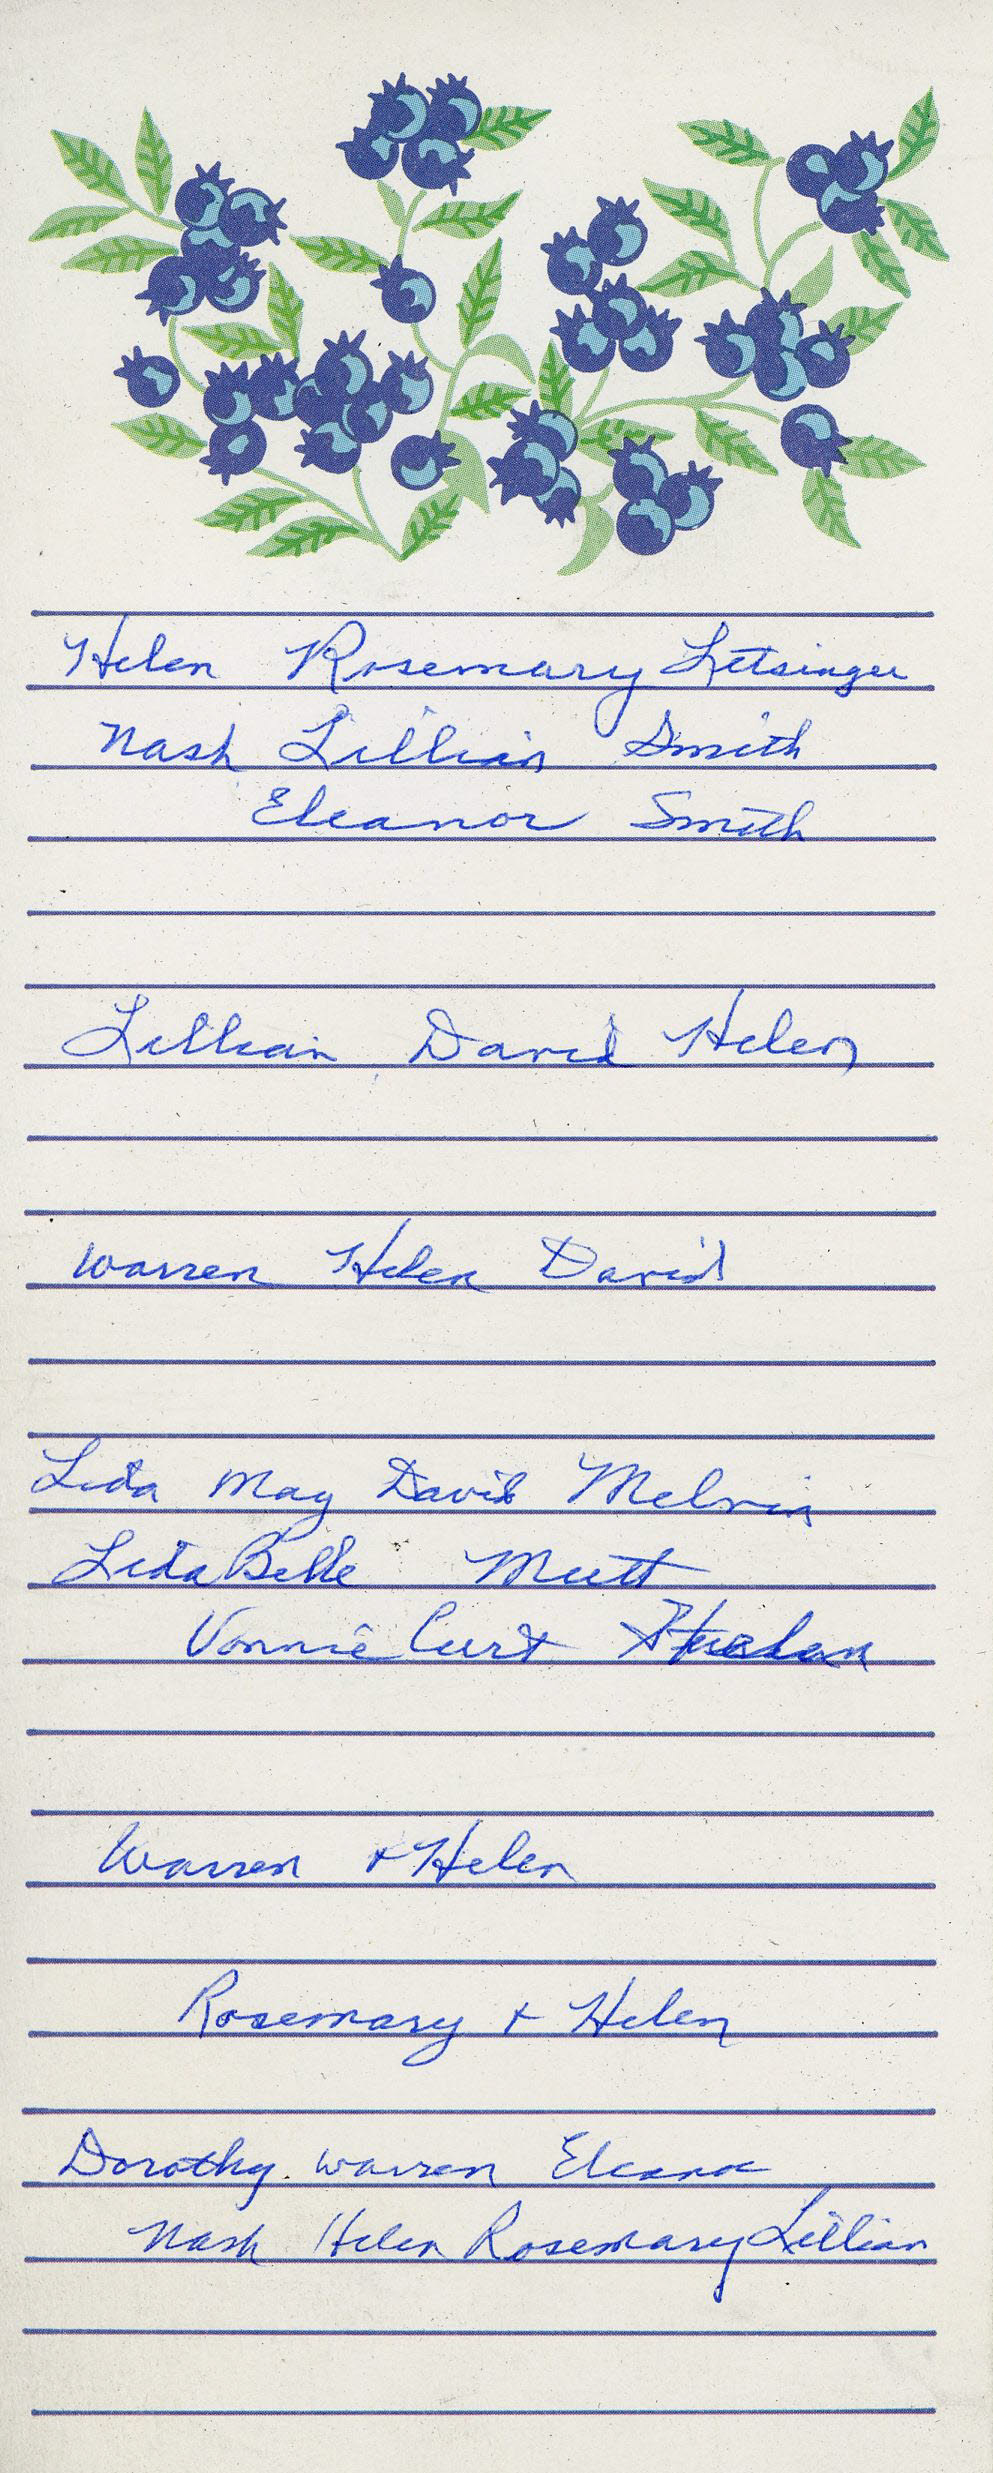 Helen Rosemary Letsinger
Nash Lillian Smith
Eleanor Smith
Lillian David Helen
Warren Helen David
Leda May David Melvin
Leda Belle Mutt
Vonnie Curt
Warren + Helen
Rosemary + Helen
Dorothy Warren Eleanor
Nash Helen Rosemary Lillian